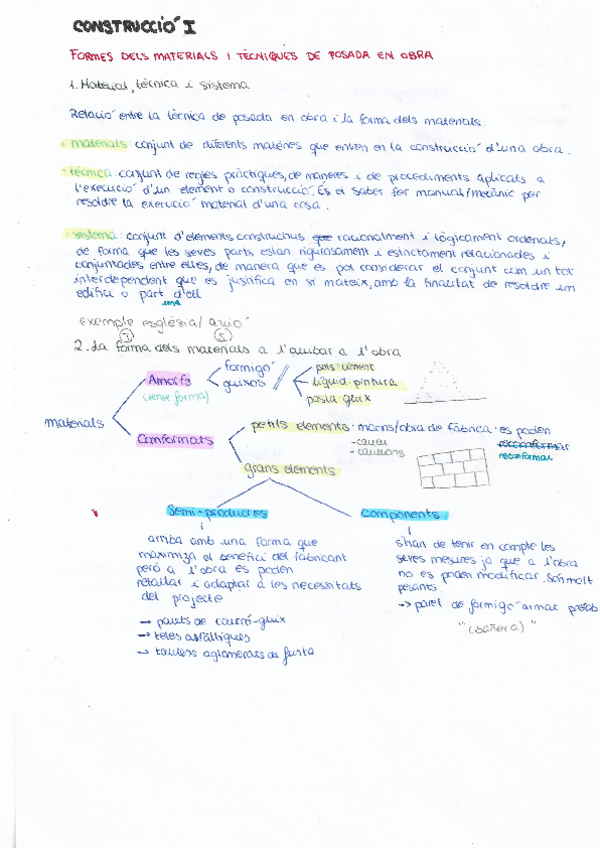 CONSTRUCCIÓ I
FORMES DELS MATERIALS I TÈCNIQUES DE POSADA EN OBRA
1. Material, tècnica i sistema
Relació entre la tècnica de posada en obra i la forma dels materials.
· materials: conjunt de diferents matèries que entren en la construcció d'una obra.
· tècnica: conjunt de regles pràctiques, de maneres i de procediments aplicats a
l'execució d'un element o construcció. És el saber fer manual/mecànic per
resoldre la execució material d'una cosa.
· sistema: conjunt d'elements constructius que racionalment i lògicament ordenats,
de forma que les seves parts estan rigurosament i estrictament relacionades i
conjuntades entre elles, de manera que es pot considerar el conjunt com un tot
interdependent que es justifica en si mateix, amb la finalitat de resoldre un
edifici o part d'ell
una
exemple església/avió
2. La forma dels materials a l'arribar a l'obra
materials
Amorfs
(sense forma)
formigó
guixos
pols: ciment
líquid: pintura
pasta: guix
Conformats
petits elements: maons/obra de fàbrica · es poden
reconformar
reconformar
grans elements
Semi-productes
arriba amb una forma que
maximiza el benefici del fabricant
però a l'obra es poden
retallar i adaptar a les necessitats
del projecte
→ parets de cartró-guix
→ teles asfàltiques
→ taulers aglomerats de fusta
Components
s'han de tenir en compte les
seves mesures ja que a l'obra
no es poden modificar. Són molt
pesants.
→ paret de formigó armat prefab
"(bañera)"